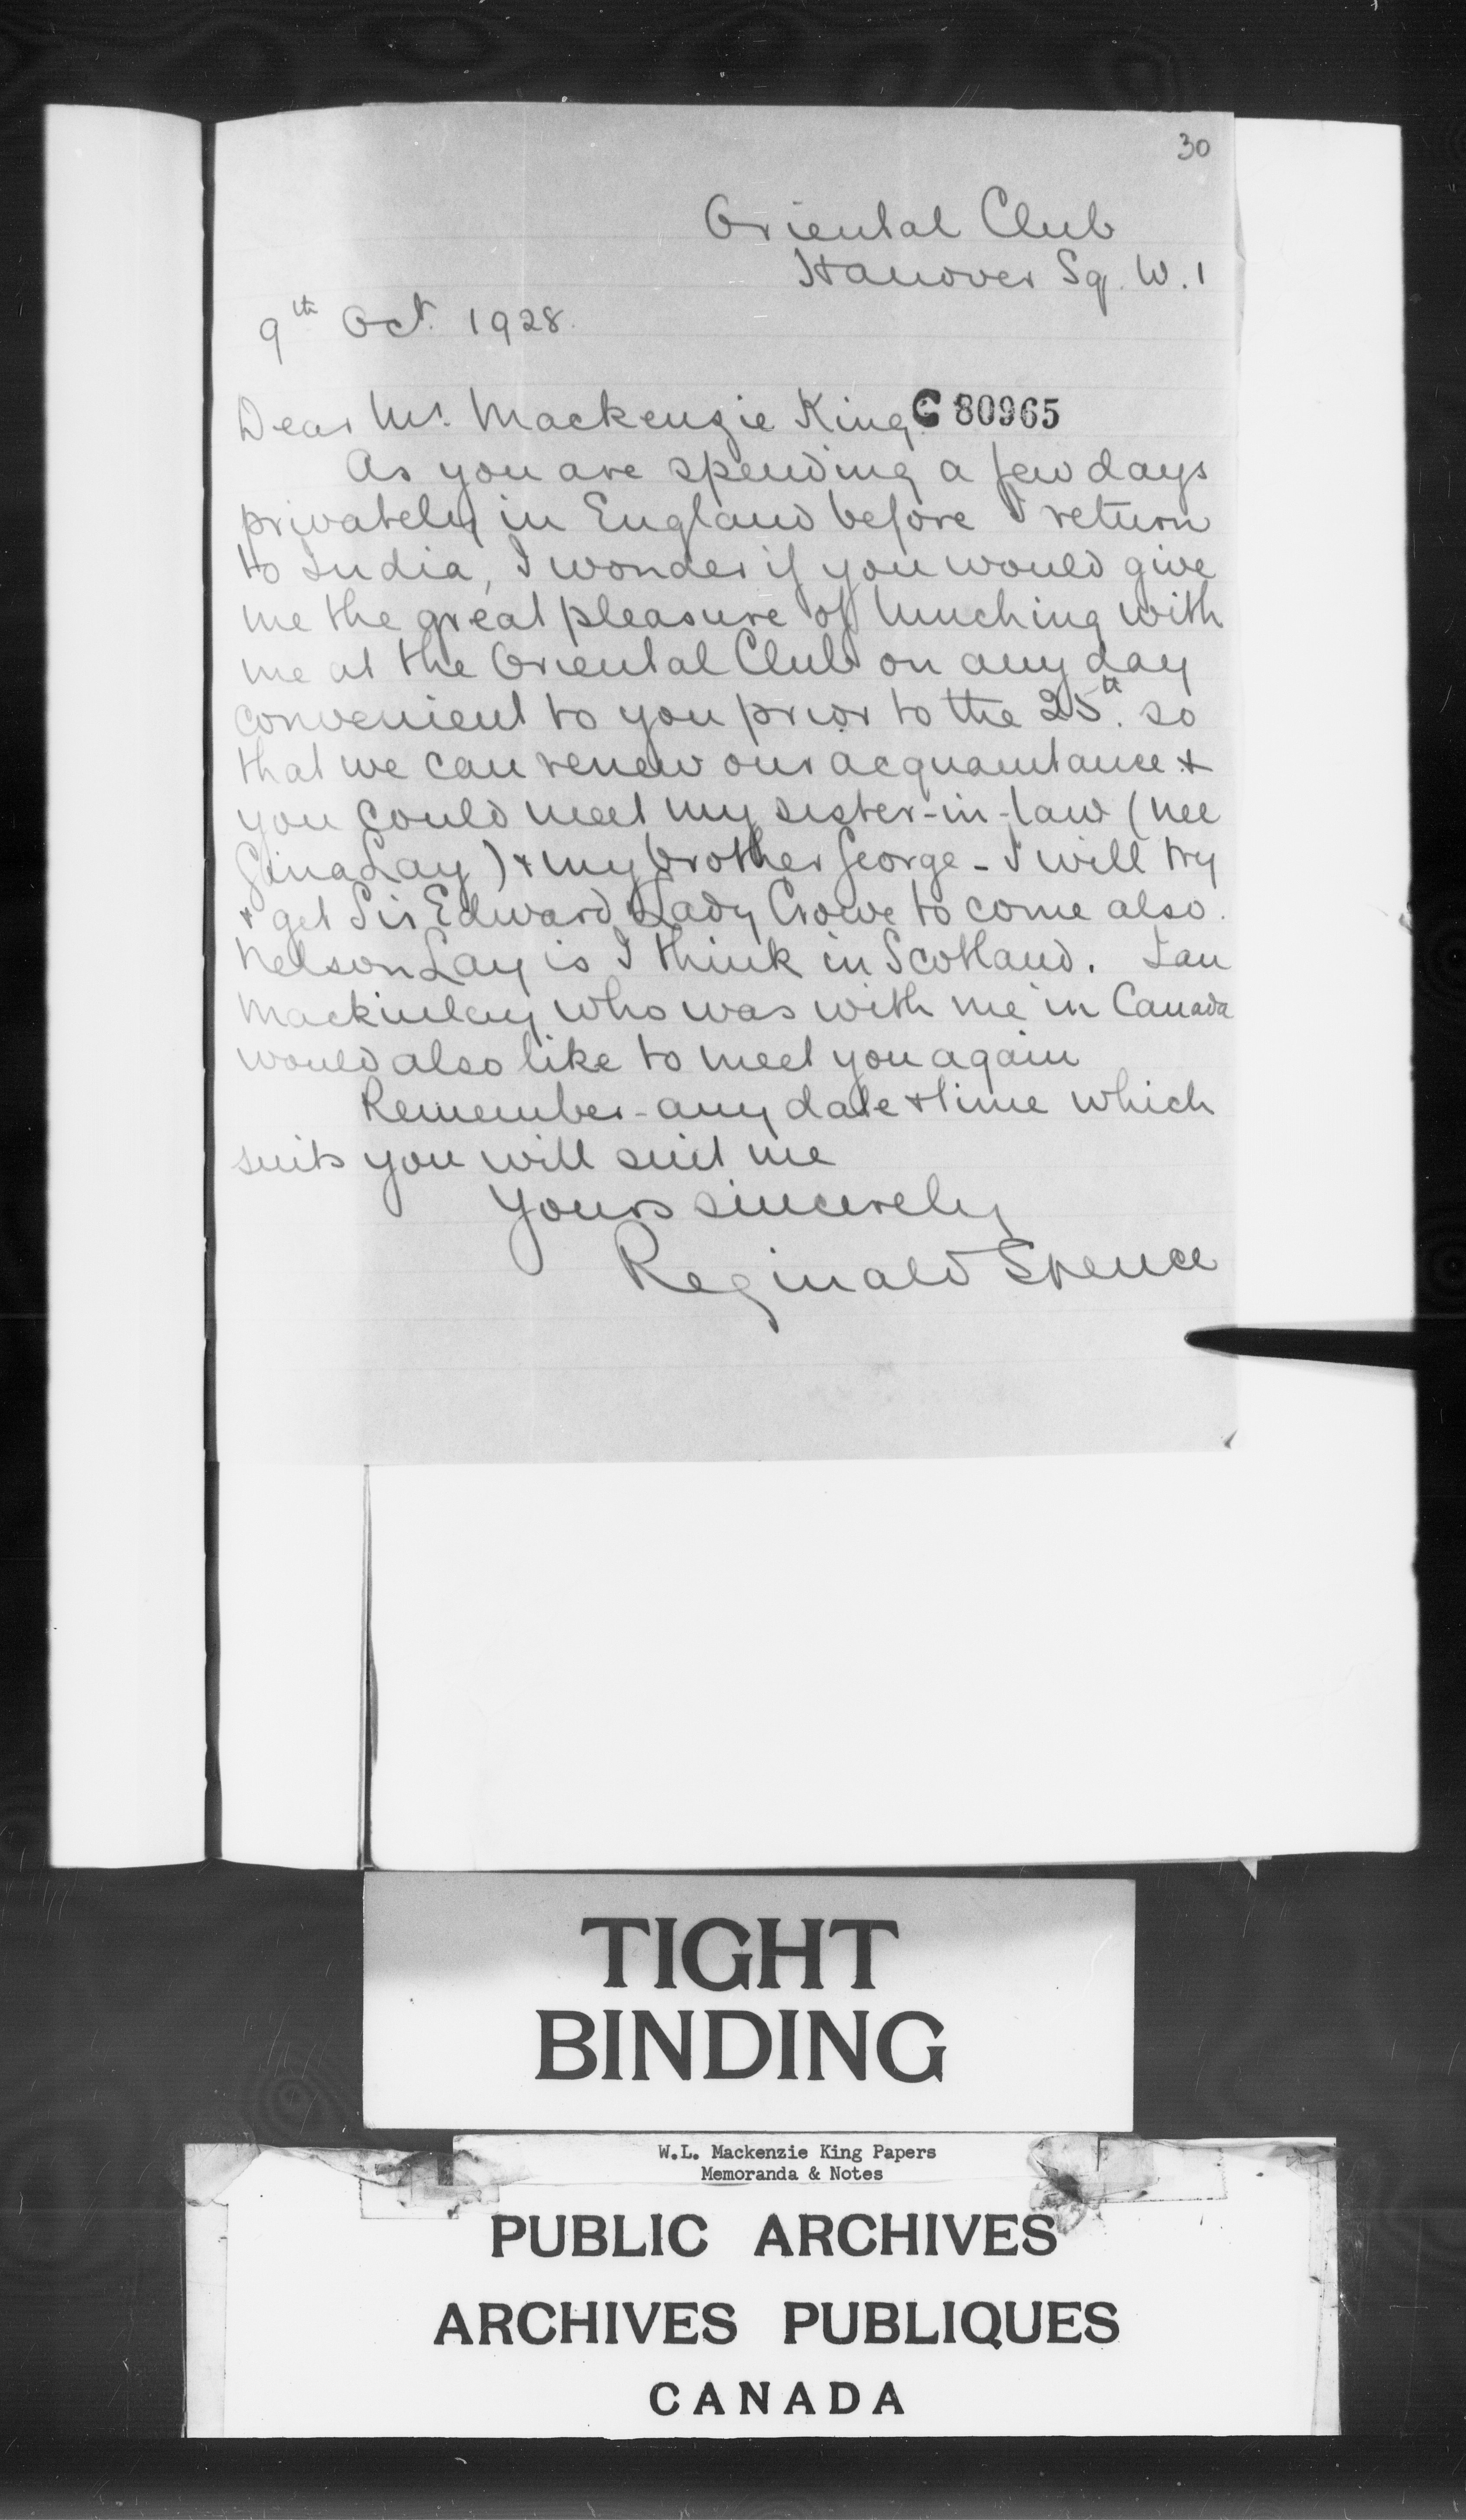 30
Oriental Club
Hanover Sq. W.1
9th Oct. 1928.
Dear Mr. Mackenzie King C 80965
As you are spending a few days
privately in England before I return
to India, I wonder if you would give
me the great pleasure of lunching with
me at the Oriental Club on any day
convenient to you prior to the 25th. so
that we can renew our acquaintance &
you could meet my sister-in-law (nee
Gina Lay) & my brother George - I will try
& get Sir Edward & Lady Crowe to come also.
Nelson Lay is I think in Scotland. Ian
Mackinlay who was with me in Canada
would also like to meet you again
Remember - any date & time which
suits you will suit me
Yours sincerely
Reginald Spence
TIGHT
BINDING
W.L. Mackenzie King Papers
Memoranda & Notes
PUBLIC ARCHIVES
ARCHIVES PUBLIQUES
CANADA